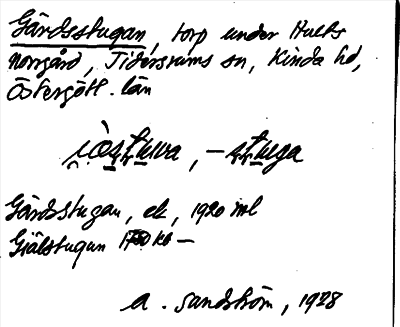 Gärdsstugan, torp under Hults
norrgård, Tidersrums sn, Kinda hd,
Östergötl. län
stuga
Gärdsstugan, ek, 1920 ml
Gjälstugun
A. Sandström, 1928